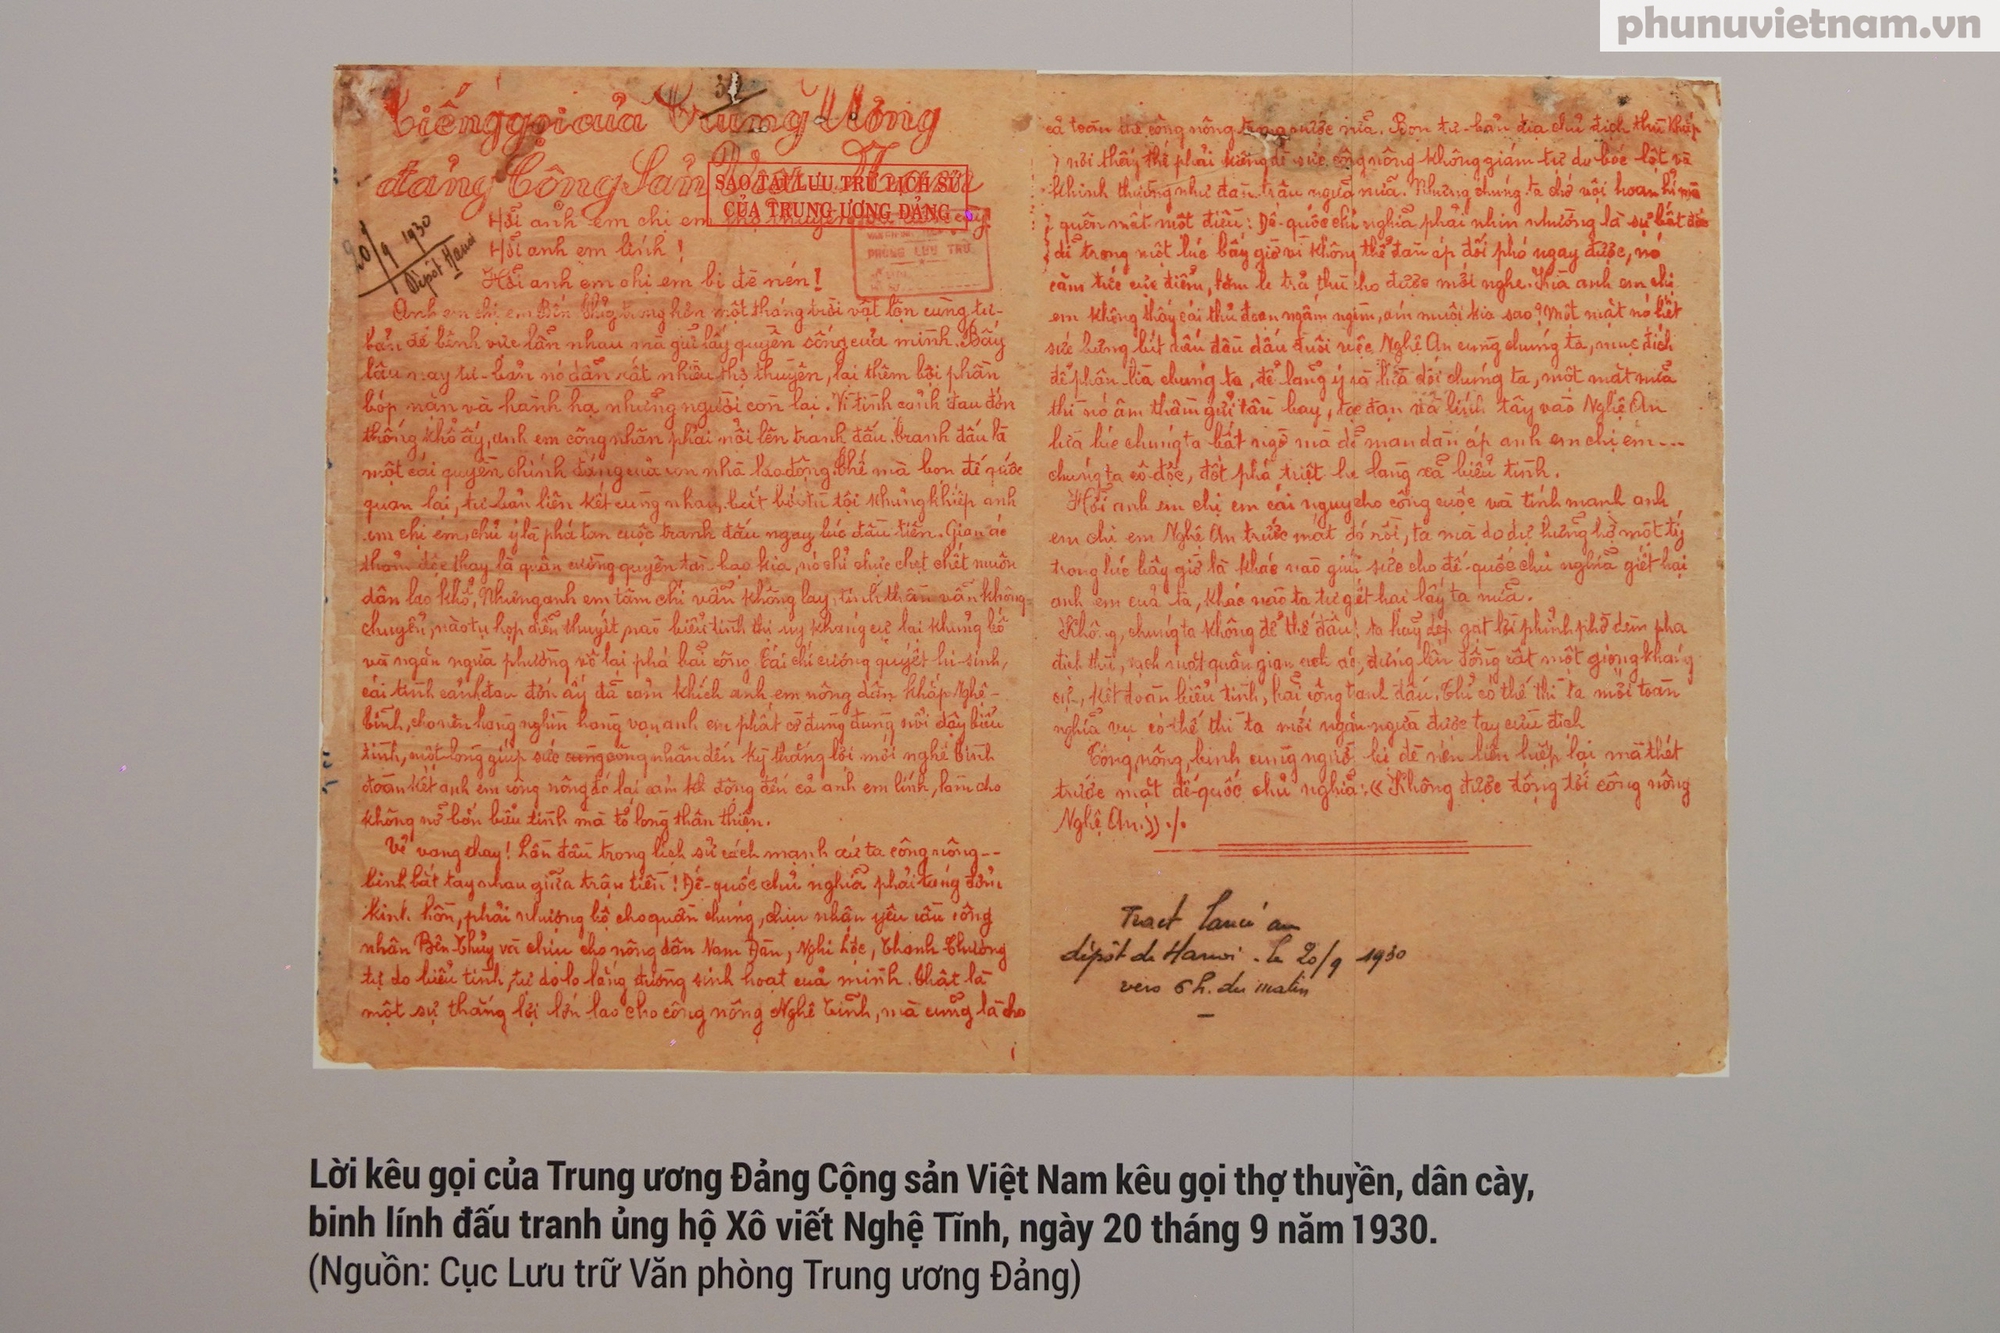 phunuvietnam.vn
Tiếng gọi của Trung Ương
đảng Cộng Sản Việt Nam
SAO TẠI LƯU TRỮ LỊCH SỬ
CỦA TRUNG ƯƠNG ĐẢNG
PHÒNG LƯU TRỮ
20/9 1930
Dépôt Hanoi
Hỡi anh em chị em thợ thuyền
Hỡi anh em lính!
Hỡi anh em chị em bị đè nén!
Anh em chị em Bến Thủy trong hơn một tháng trời vật lộn cùng tư-
bản để bênh vực lẫn nhau mà giữ lấy quyền sống của mình. Bấy
lâu nay tư-bản nó dãn rất nhiều thợ thuyền, lại thêm bội phần
bóp nặn và hành hạ những người còn lại. Vì tình cảnh đau đớn
thống khổ ấy, anh em công nhân phải nổi lên tranh đấu. Tranh đấu là
một cái quyền chính đáng của con nhà lao động. Thế mà bọn đế quốc
quan lại, tư-bản liên kết cùng nhau
em chị em, chủ ý là phá tan cuộc tranh đấu ngay lúc đầu tiên. Gian ác
thảm độc thay là quân cường quyền tàn bạo kia, nó chỉ chực chẹt chết muôn
dân lao khổ. Nhưng anh em tâm chí vẫn không lay, tinh thần vẫn không
chuyển, nào tụ họp diễn thuyết, nào biểu tình thị uy kháng cự lại khủng bố
và ngăn ngừa phường vô lại phá bãi công. Cái chí cương quyết hi-sinh,
cái tình cảnh đau đớn ấy đã cảm khích anh em nông dân khắp Nghệ-
Tĩnh, cho nên hàng nghìn hàng vạn anh em phất cờ đùng đùng nổi dậy biểu
tình, một lòng giúp sức cùng công nhân đến kỳ thắng lợi mới nghe. Tình
đoàn kết anh em công nông đó lại cảm kê động đến cả anh em lính, làm cho
không nỡ bắn biểu tình mà tỏ lòng thân thiện.
Vẻ vang thay! Lần đầu trong lịch sử cách mạnh xứ ta công nông--
binh bắt tay nhau giữa trận tiền! Đế-quốc chủ nghĩa phải
kinh hồn, phải nhượng bộ cho quần chúng, chịu nhận yêu cầu công
nhân Bến Thủy và chịu cho nông dân Nam Đàn, Nghi Lộc, Thanh Chương
tự do biểu tình, tự do lo lắng đường sinh hoạt của mình. Thật là
một sự thắng lợi lớn lao cho công nông Nghệ Tĩnh, mà cũng là cho
cả toàn thể công nông trong nước nữa. Bọn tư-bản địa chủ địch thù khắp
nơi thấy thế phải kiêng dè sức công nông không giám tự do bóc lột và
khinh thường như đàn trâu ngựa nữa. Nhưng chúng ta chớ vội hoan hỉ mà
quên mất một điều: Đế-quốc chủ nghĩa phải nhìn nhường là sự bất đắc
dĩ trong một lúc bấy giờ vì không thể đàn áp đối phó ngay được, nó
căm tức cực điểm, răm le trả thù cho được mới nghe. Kìa anh em chị
em không thấy cái thủ đoạn ngấm ngầm, ám muội kia sao? Một mặt nó hết
sức bưng bít dấu đầu dấu đuôi việc Nghệ An cùng chúng ta, mục đích
để phân lìa chúng ta, để lảng ý và lừa dối chúng ta, một mặt nữa
thì nó âm thầm gửi tầu bay, tạc đạn và lính tây vào Nghệ An
lừa lúc chúng ta bất ngờ mà dễ man đàn áp anh em chị em---
chúng ta cô-độc, đốt phá triệt hạ làng xã biểu tình.
Hỡi anh em chị em cái nguy cho công cuộc và tính mạnh anh
em chị em Nghệ An trước mắt đó rồi, ta mà do dự hững hờ một tý
trong lúc bấy giờ là khác nào giúp sức cho đế-quốc chủ nghĩa giết hại
anh em của ta, khác nào ta tự giết hại lấy ta nữa.
Không, chúng ta không để thế đâu! ta hãy dẹp gạt lời phỉnh phờ dèm pha
địch thù, đứng lên đồng cất một giọng kháng
cự, kết đoàn biểu tình, bãi công tranh đấu. Chỉ có thế thì ta mới toàn
nghĩa vụ có thế thì ta mới ngăn ngừa được tay cừu địch
Công, nông, binh cùng người bị đè nén liên hiệp lại mà thét
trước mặt đế-quốc chủ nghĩa: «Không được động tới công nông
Nghệ An.»./.
Tract lancé au
dépôt de Hanoi. le 20/9 1930
vers 6 h. du matin
Lời kêu gọi của Trung ương Đảng Cộng sản Việt Nam kêu gọi thợ thuyền, dân cày,
binh lính đấu tranh ủng hộ Xô viết Nghệ Tĩnh, ngày 20 tháng 9 năm 1930.
(Nguồn: Cục Lưu trữ Văn phòng Trung ương Đảng)